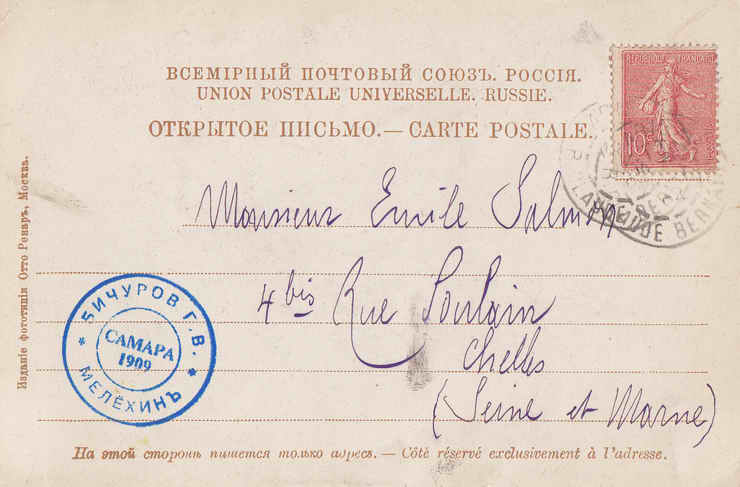 ВСЕМІРНЫЙ ПОЧТОВЫЙ СОЮЗЪ. РОССІЯ.
UNION POSTALE UNIVERSELLE. RUSSIE.
ОТКРЫТОЕ ПИСЬМО. — CARTE POSTALE.
RÉPUBLIQUE FRANÇAISE
10c
Monsieur Emile Salmon
4 bis Rue Poulain
Chelles
(Seine et Marne)
БИЧУРОВ Г. В.
САМАРА
1909
МЕЛЁХИНЪ
Изданіе фототипіи Отто Ренаръ, Москва.
На этой сторонѣ пишется только адресъ. — Côté réservé exclusivement à l'adresse.